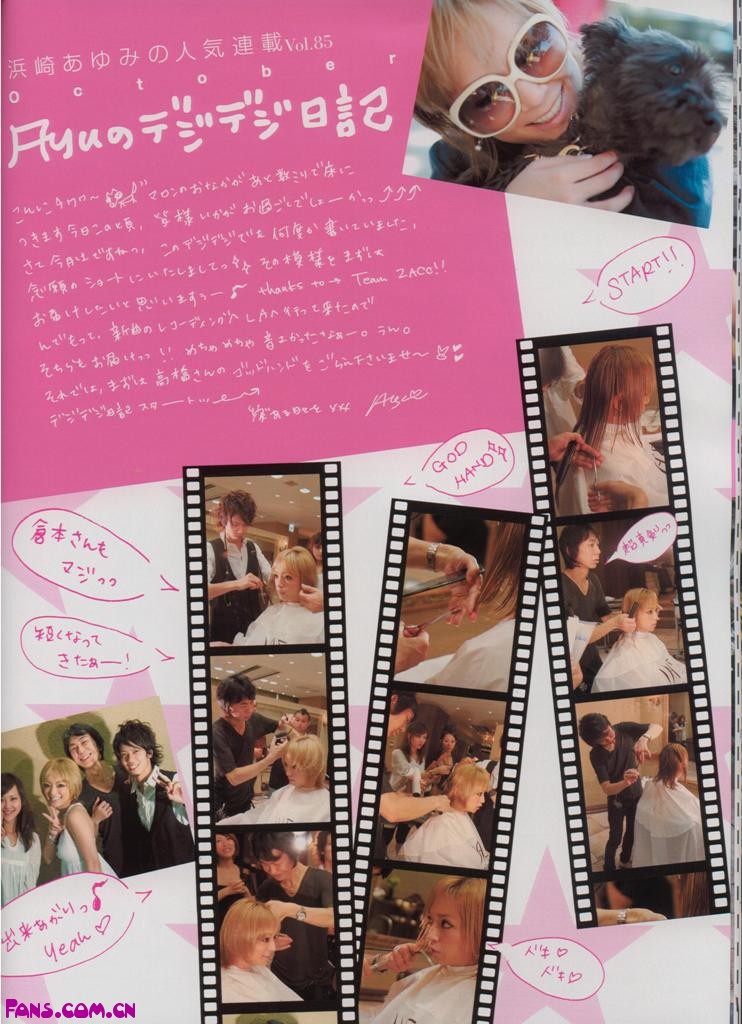 浜崎あゆみの人気連載Vol.85
October
Ayuのデジデジ日記
こんにチワワ〜 マロンのおなかがあと数ミリで床に
つきます今日この頃、皆様いかがお過ごしでしょーかっ↗↗↗
さて今月はですねっ、このデジデジでも何度か書いていました、
念願のショートにいたしましてっ☆その模様をまずは
お届けしたいと思いますぅー♪ thanks to → Team ZACC!!
んでもって、新曲のレコーディングへLAへ行って来たので
そちらもお届けっっ!! めちゃめちゃ音よかったなぁー。うん。
それでは、まずは高橋さんのゴッドハンドをごらん下さいませ〜
デジデジ日記スタート...
Ayu
START!!
GOD
HAND
超真剣っっ
倉本さんも
マジっっ
短くなって
きたぁー!
出来あがりっ♪
Yeah♡
ドキ♡
ドキ♡
FANS.COM.CN